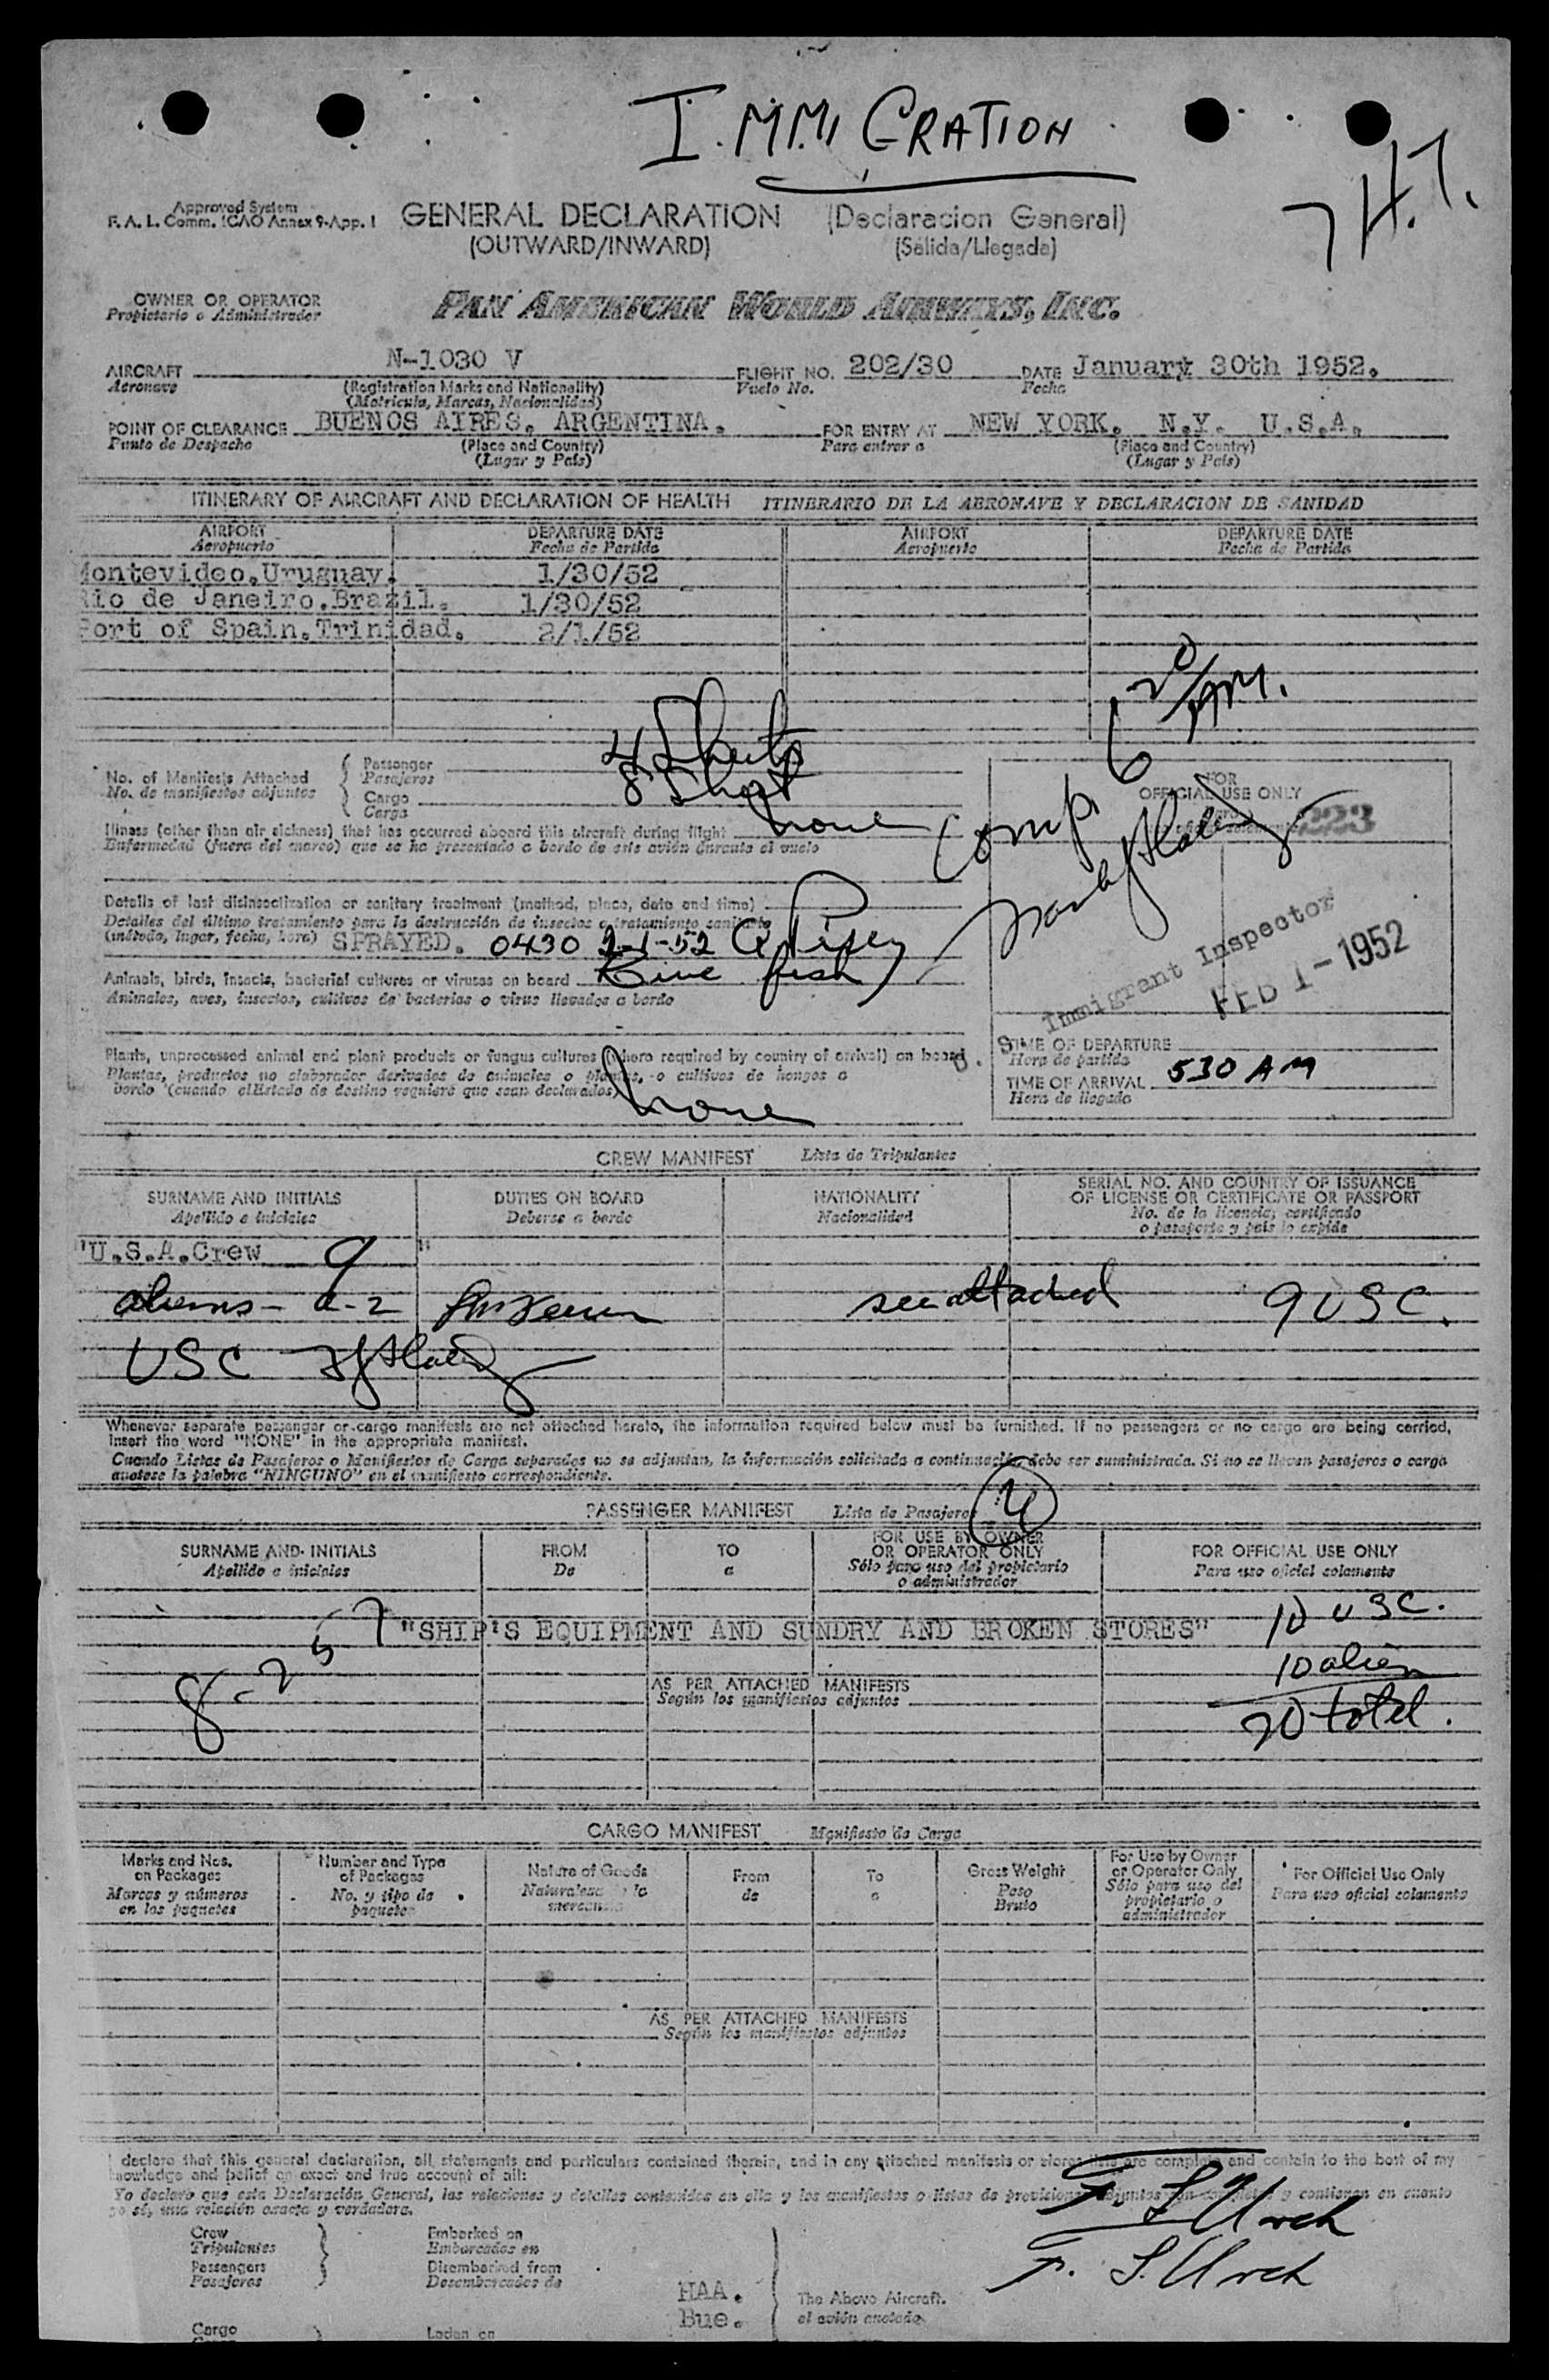 I.MMIGRATION
H.T.
Approved System
F. A. L. Comm. ICAO Annex 9-App. I
GENERAL DECLARATION (Declaracion General)
(OUTWARD/INWARD) (Salida/Llegada)
OWNER OR OPERATOR
Propietario o Administrador
PAN AMERICAN WORLD AIRWAYS, INC.
AIRCRAFT N-1030 V FLIGHT NO. 202/30 DATE January 30th 1952.
Aeronave (Registration Marks and Nationality) Vuelo No. Fecha
(Matricula, Marcas, Nacionalidad)
POINT OF CLEARANCE BUENOS AIRES, ARGENTINA. FOR ENTRY AT NEW YORK, N.Y. U.S.A.
Punto de Despacho (Place and Country) Para entrar a (Place and Country)
(Lugar y País) (Lugar y País)
ITINERARY OF AIRCRAFT AND DECLARATION OF HEALTH ITINERARIO DE LA AERONAVE Y DECLARACION DE SANIDAD
AIRPORT DEPARTURE DATE AIRPORT DEPARTURE DATE
Aeropuerto Fecha de Partida Aeropuerto Fecha de Partida
Montevideo,Uruguay. 1/30/52
Rio de Janeiro,Brazil. 1/30/52
Port of Spain,Trinidad. 2/1/52
Comp. 6 20 AM.
No. of Manifests Attached Passenger 4 Sheets
No. de manifiestos adjuntos Pasajeros
Cargo 8 Sheet
Carga
FOR
OFFICIAL USE ONLY
223
Illness (other than air sickness) that has occurred aboard this aircraft during flight none
Enfermedad (fuera del mareo) que se ha presentado a bordo de este avión durante el vuelo
Details of last disinsectization or sanitary treatment (method, place, date and time)
Detalles del último tratamiento para la destrucción de insectos o tratamiento sanitario
(método, lugar, fecha, hora) SPRAYED. 0430 2-1-52
Animals, birds, insects, bacterial cultures or viruses on board Live fish
Animales, aves, insectos, cultivos de bacterias o virus llevados a bordo
U. S. Immigrant Inspector
FEB 1-1952
Plants, unprocessed animal and plant products or fungus cultures (where required by country of arrival) on board
Plantas, productos no elaborados derivados de animales o plantas, o cultivos de hongos a
bordo (cuando el Estado de destino requiere que sean declarados) none
TIME OF DEPARTURE
Hora de partida
TIME OF ARRIVAL 530 AM
Hora de llegada
CREW MANIFEST Lista de Tripulantes
SURNAME AND INITIALS DUTIES ON BOARD NATIONALITY SERIAL NO. AND COUNTRY OF ISSUANCE
OF LICENSE OR CERTIFICATE OR PASSPORT
Apellido e iniciales Deberes a bordo Nacionalidad No. de la licencia, certificado
o pasaporte y país lo expide
"U.S.A.Crew 9 "
aliens - a-2 see attached 9 USC.
USC
Whenever separate passenger or cargo manifests are not attached hereto, the information required below must be furnished. If no passengers or no cargo are being carried,
insert the word "NONE" in the appropriate manifest.
Cuando Listas de Pasajeros o Manifiestos de Carga separados no se adjuntan, la información solicitada a continuación debe ser suministrada. Si no se llevan pasajeros o carga
anotese la palabra "NINGUNO" en el manifiesto correspondiente.
PASSENGER MANIFEST Lista de Pasajeros
SURNAME AND INITIALS FROM TO FOR USE BY OWNER
OR OPERATOR ONLY FOR OFFICIAL USE ONLY
Apellido e iniciales De a Sólo para uso del propietario
o administrador Para uso oficial solamente
10 USC.
"SHIP'S EQUIPMENT AND SUNDRY AND BROKEN STORES"
8-257
10 alien
AS PER ATTACHED MANIFESTS
Según los manifiestos adjuntos
20 total.
CARGO MANIFEST Manifiesto de Carga
Marks and Nos.
on Packages
Marcas y números
en los paquetes
Number and Type
of Packages
No. y tipo de
paquetes
Nature of Goods
Naturaleza de la
mercancia
From
de
To
a
Gross Weight
Peso
Bruto
For Use by Owner
or Operator Only
Sólo para uso del
propietario o
administrador
For Official Use Only
Para uso oficial solamente
AS PER ATTACHED MANIFESTS
Según los manifiestos adjuntos
I declare that this general declaration, all statements and particulars contained therein, and in any attached manifests or stores lists are complete and contain to the best of my
knowledge and belief an exact and true account of all:
Yo declaro que esta Declaración General, las relaciones y detalles contenidos en ella y los manifiestos o listas de provisiones adjuntos son completos y contienen en cuanto
yo sé, una relación exacta y verdadera.
F. S. Urch
F. S. Urch
Crew Embarked on
Tripulantes Embarcados en
Passengers Disembarked from
Pasajeros Desembarcados de
HAA. The Above Aircraft.
Bue. el avión anotado.
Cargo Laden on